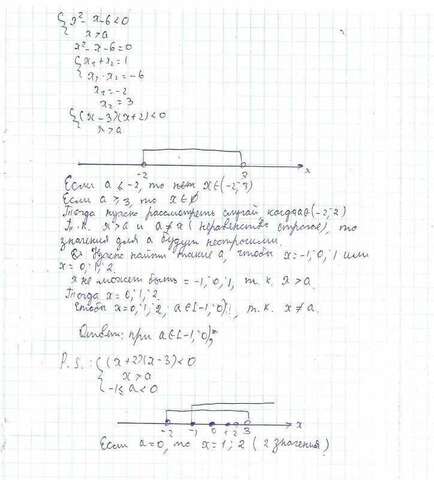 {x² - x - 6 < 0
x > a
x² - x - 6 = 0
{x₁ + x₂ = 1
x₁ · x₂ = -6
x₁ = -2
x₂ = 3
{(x - 3)(x + 2) < 0
x > a
-2 3 x
Если a ≤ -2, то x ∈ (-2; 3)
Если a ≥ 3, то x ∈ ∅
Тогда нужно рассмотреть случай когда a ∈ (-2;
Т.к. x > a и a ≠ x (неравенство строгое), то
значения для a будут нестрогими.
Нужно найти такие a, чтобы x = -1; 0; 1 или
x = 0; 1; 2.
x не может быть = -1; 0; 1, т.к. x > a.
Тогда x = 0; 1; 2.
Чтобы x = 0; 1; 2, a ∈ [-1; 0), т.к. x ≠ a.
Ответ: при a ∈ [-1; 0)
P.S.: {(x + 2)(x - 3) < 0
x > a
-1 ≤ a < 0
-2 -1 0 1 2 3 x
Если a = 0, то x = 1; 2 (2 значения)